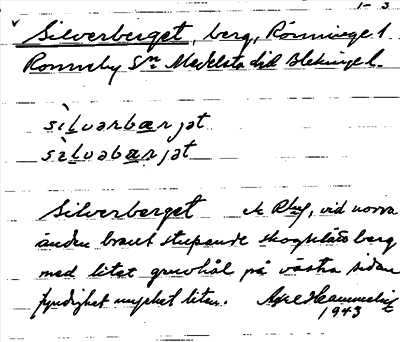 1-3
Silverberget, berg, Rönninge 1
Ronneby Sn Medelsta hd Blekinge l.
sìlvərbærjət
sìlvəbærjət
Silverberget , vid norra
änden brant stupande skogklätt berg
med litet gruvhål på västra sidan
fyndighet mycket liten.
1943